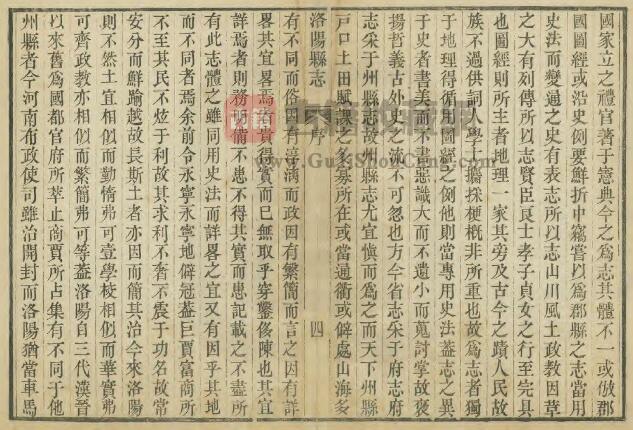 國家立之禮官著于憲典今之為志其體不一或倣郡
國圖經或沿史例要鮮折中竊嘗以為郡縣之志當用
史法而變通之史有表志所以志山川風土政教因革
之大有列傳所以志賢臣良士孝子貞女之行至完具
也圖經則所主者地理一家其旁及古今之蹟人民故
族不過供詞人學士攟採梗概非所重也故為志者獨
于地理得循用圖經之例他則當專用史法蓋志之異
于史者書美而不書惡識大而不遺小而蒐討掌故褒
揚哲義古外史之流不可忽也方今省志采于府志府
志采于州縣志故州縣志尤宜慎而為之而天下州縣
戶口土田賦課之多寡所在或當通衢或僻處山海多
洛陽縣志 序 四
有不同而俗因有淳漓而政因有繁簡而言之因有詳
畧其宜畧焉貴得實而已無取乎穿鑿侈陳也其宜
詳焉者則務所備不患不得其實而患記載之不盡所
有此志體之雖同用史法而詳畧之宜又有因乎其地
而不同者焉余前令永寧永寧地僻冠蓋巨賈富商所
不至其民不炫于利故其求利不奢不震于功名故常
安分而鮮踰越故長斯土者亦因而簡其治今來洛陽
則不然土宜相似而勤惰弗可壹學校相似而華實弗
可齊政教亦相似而繁簡弗可等蓋洛陽自三代漢晉
以來舊為國都官府所萃止商賈所占集有不同于他
州縣者今河南布政使司雖治開封而洛陽猶當車馬